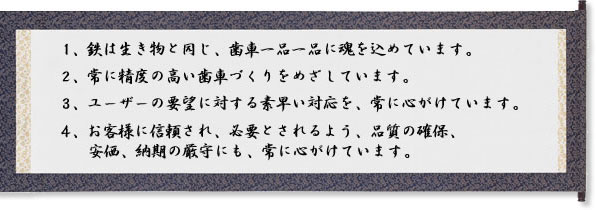 1、鉄は生き物と同じ、歯車一品一品に魂を込めています。
2、常に精度の高い歯車づくりをめざしています。
3、ユーザーの要望に対する素早い対応を、常に心がけています。
4、お客様に信頼され、必要とされるよう、品質の確保、
安価、納期の厳守にも、常に心がけています。